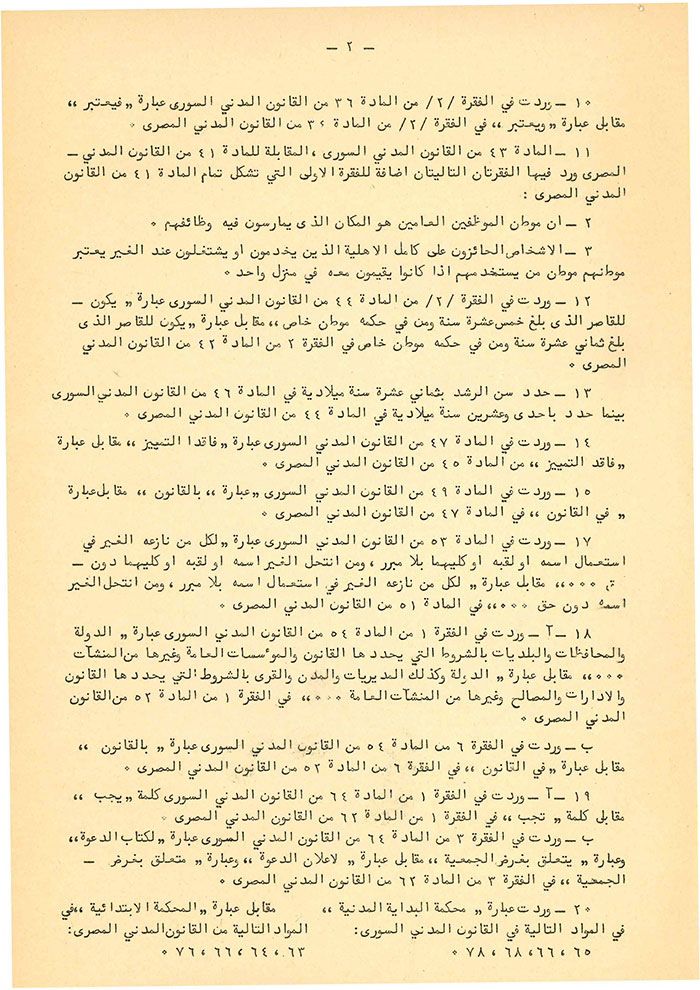 — ٢ —
١٠ — وردت في الفقرة /٢/ من المادة ٣٦ من القانون المدني السورى عبارة „ فيعتبر „
مقابل عبارة „ ويعتبر „ في الفقرة /٢/ من المادة ٣٤ من القانون المدني المصرى ٠
١١ — المادة ٤٣ من القانون المدني السورى ، المقابلة للمادة ٤١ من القانون المدني —
المصرى ورد فيها الفقرتان التاليتان اضافة للفقرة الاولى التي تشكل تمام المادة ٤١ من القانون
المدني المصرى :
٢ — ان موطن الموظفين العامين هو المكان الذى يمارسون فيه وظائفهم ٠
٣ — الاشخاص الحائزون على كامل الاهلية الذين يخدمون او يشتغلون عند الغير يعتبر
موطنهم موطن من يستخدمهم اذا كانوا يقيمون معه في منزل واحد ٠
١٢ — وردت في الفقرة /٢/ من المادة ٤٤ من القانون المدني السورى عبارة „ يكون —
للقاصر الذى بلغ خمس عشرة سنة ومن في حكمه موطن خاص „ مقابل عبارة „ يكون للقاصر الذى
بلغ ثماني عشرة سنة ومن في حكمه موطن خاص في الفقرة ٢ من المادة ٤٢ من القانون المدني
المصرى ٠
١٣ — حدد سن الرشد بثماني عشرة سنة ميلادية في المادة ٤٦ من القانون المدني السورى
بينما حدد باحدى وعشرين سنة ميلادية في المادة ٤٤ من القانون المدني المصرى ٠
١٤ — وردت في المادة ٤٧ من القانون المدني السورى عبارة „ فاقدا التمييز „ مقابل عبارة
„ فاقد التمييز „ من المادة ٤٥ من القانون المدني المصرى ٠
١٥ — وردت في المادة ٤٩ من القانون المدني السورى „ عبارة „ بالقانون „ مقابل عبارة
„ في القانون „ في المادة ٤٧ من القانون المدني المصرى ٠
١٧ — وردت في المادة ٥٣ من القانون المدني السورى عبارة „ لكل من نازعه الغير في
استعمال اسمه او لقبه او كليهما بلا مبرر ، ومن انتحل الغير اسمه او لقبه او كليهما دون —
ق ٠٠٠ „ مقابل عبارة „ لكل من نازعه الغير في استعمال اسمه بلا مبرر ، ومن انتحل الغير
اسمه دون حق ٠٠٠ „ في المادة ٥١ من القانون المدني المصرى ٠
١٨ — آ — وردت في الفقرة ١ من المادة ٥٤ من القانون المدني السورى عبارة „ الدولة
والمحافظات والبلديات بالشروط التي يحددها القانون والمؤسسات العامة وغيرها من المنشآت
٠٠٠ „ مقابل عبارة „ الدولة وكذلك المديريات والمدن والقرى بالشروط التي يحددها القانون
والادارات والمصالح وغيرها من المنشآت العامة ٠٠٠ „ في الفقرة ١ من المادة ٥٢ من القانون
المدني المصرى ٠
ب — وردت في الفقرة ٦ من المادة ٥٤ من القانون المدني السورى عبارة „ بالقانون „
مقابل عبارة „ في القانون „ في الفقرة ٦ من المادة ٥٢ من القانون المدني المصرى ٠
١٩ — آ — وردت في الفقرة ١ من المادة ٦٤ من القانون المدني السورى كلمة „ يجب „
مقابل كلمة „ تجب „ في الفقرة ١ من المادة ٦٢ من القانون المدني المصرى ٠
ب — وردت في الفقرة ٣ من المادة ٦٤ من القانون المدني السورى عبارة „ لكتاب الدعوة „
وعبارة „ يتعلق بغرض الجمعية „ مقابل عبارة „ لاعلان الدعوة „ وعبارة „ متعلق بغرض —
الجمعية „ في الفقرة ٣ من المادة ٦٢ من القانون المدني المصرى ٠
٢٠ — وردت عبارة „ محكمة البداية المدنية „ مقابل عبارة „ المحكمة الابتدائية „ في
في المواد التالية في القانون المدني السورى: المواد التالية من القانون المدني المصرى:
٦٥ ، ٦٦ ، ٦٨ ، ٧٨ ٠ ٦٣ ، ٦٤ ، ٦٦ ، ٧٦ ٠